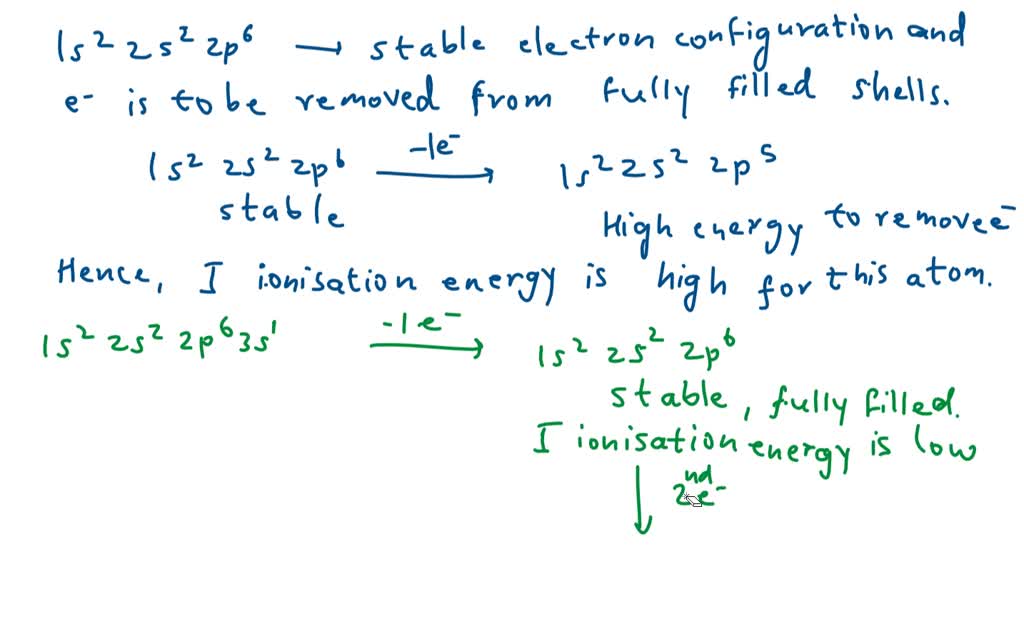 1s² 2s² 2p⁶ → stable electron configuration and
e⁻ is to be removed from fully filled shells.
1s² 2s² 2p⁶ -1e⁻→ 1s² 2s² 2p⁵
stable
High energy to remove e⁻
Hence, I ionisation energy is high for this atom.
1s² 2s² 2p⁶ 3s¹ -1e⁻→ 1s² 2s² 2p⁶
stable, fully filled.
I ionisation energy is low
↓ 2nd e⁻